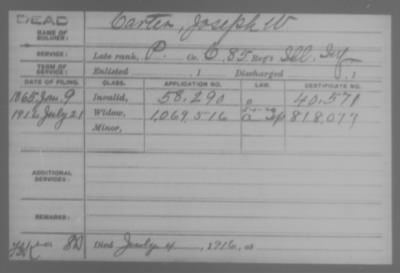 DEAD
NAME OF SOLDIER: Carter, Joseph W
SERVICE: Late rank, P. Co. C, 85 Reg't Ill. Inf
TERM OF SERVICE: Enlisted , 1 Discharged , 1
DATE OF FILING. CLASS. APPLICATION NO. LAW. CERTIFICATE NO.
1865 Jan. 9 Invalid, 58,290 40,571
1916 July 21 Widow, 1,069,516 818,077
Minor,
ADDITIONAL SERVICES:
REMARKS:
Died July 4, 1916, at